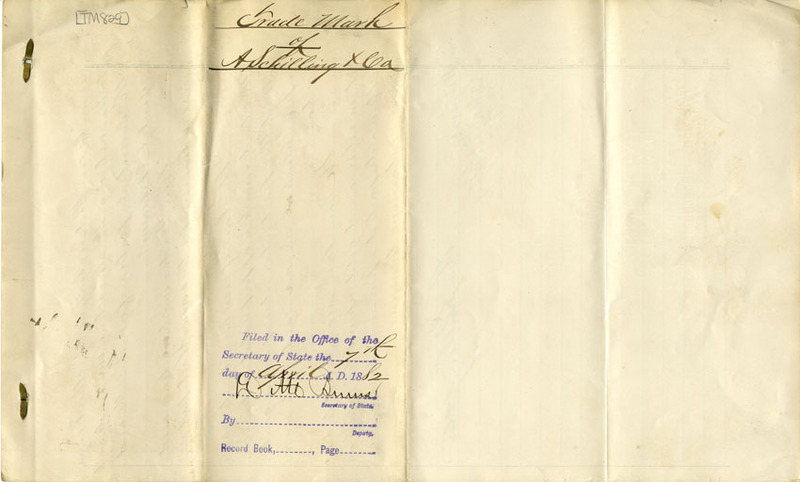 [TM829]
Trade Mark
of
A Schilling & Co
Filed in the Office of the
Secretary of State the 7th
day of April A. D. 1882
Secretary of State.
By
Deputy.
Record Book, , Page